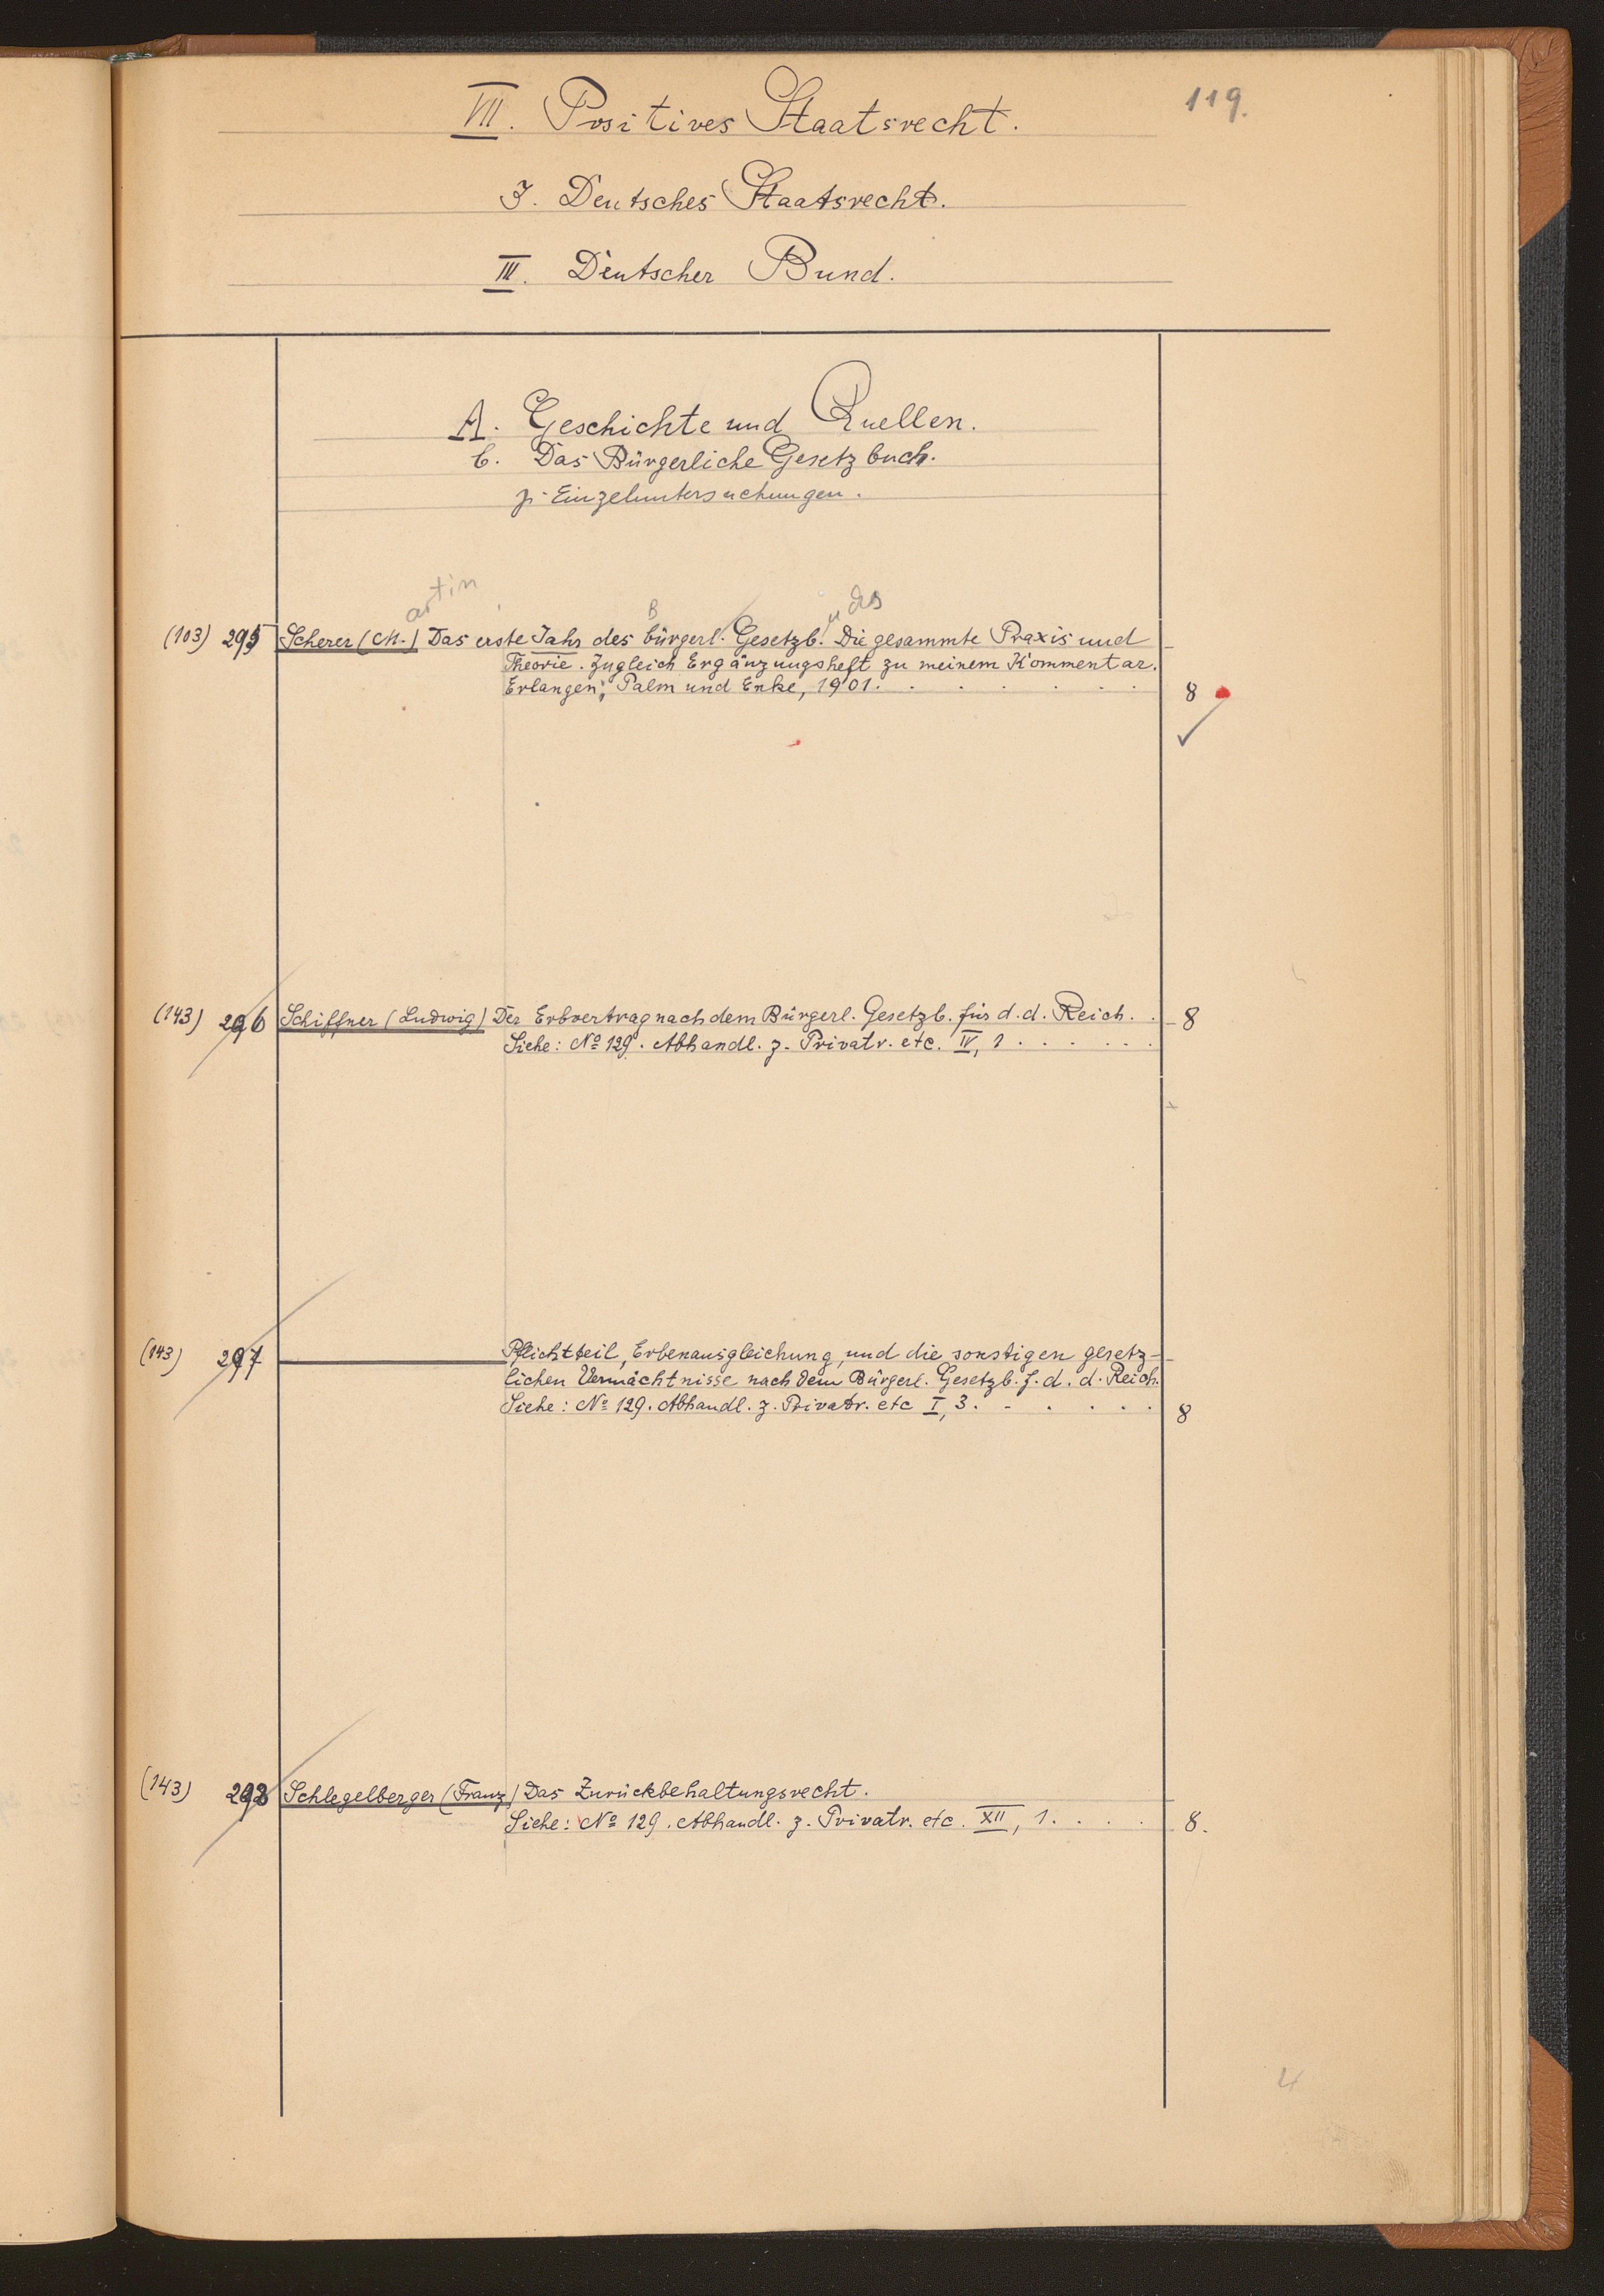 119.
VII. Positives Staatsrecht.
J. Deutsches Staatsrecht.
III. Deutscher Bund.
A. Geschichte und Quellen.
b. Das Bürgerliche Gesetzbuch.
Einzeluntersuchungen.
artin B des
(103) 295 Scherer (M.) Das erste Jahr des bürgerl. Gesetzb. Die gesammte Praxis und
Theorie. Zugleich Ergänzungsheft zu meinem Kommentar.
Erlangen, Palm und Enke, 1901. 8
(143) 296 Schiffner (Ludwig) Der Erbvertrag nach dem Bürgerl. Gesetzb. für d. d. Reich. 8
Siehe: No 129. Abhandl. z. Privatr. etc. IV, 1
(143) 297 Pflichtteil, Erbenausgleichung, und die sonstigen gesetz-
lichen Vermächtnisse nach dem Bürgerl. Gesetzb. f. d. d. Reich.
Siehe: No 129. Abhandl. z. Privatr. etc I, 3. 8
(143) 298 Schlegelberger (Franz) Das Zurückbehaltungsrecht.
Siehe: No 129. Abhandl. z. Privatr. etc. XII, 1. 8.
4